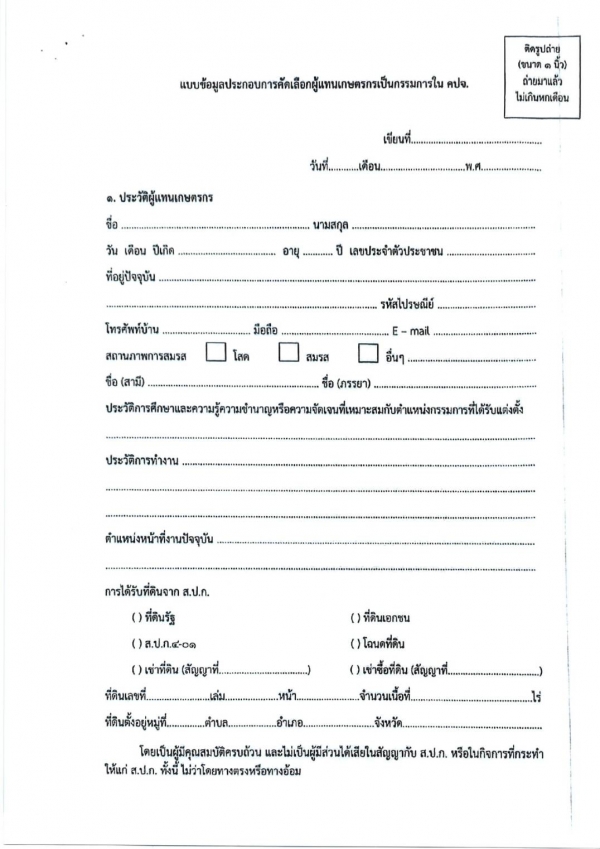 ติดรูปถ่าย
(ขนาด ๑ นิ้ว)
ถ่ายมาแล้ว
ไม่เกินหกเดือน
แบบข้อมูลประกอบการคัดเลือกผู้แทนเกษตรกรเป็นกรรมการใน คปจ.
เขียนที่..............................................
วันที่...........เดือน..............................พ.ศ......................
๑. ประวัติผู้แทนเกษตรกร
ชื่อ .................................................................. นามสกุล ..................................................................
วัน เดือน ปีเกิด .................................. อายุ ........... ปี เลขประจำตัวประชาชน ................................
ที่อยู่ปัจจุบัน ....................................................................................................................................
.................................................................................................. รหัสไปรษณีย์ ..................................
โทรศัพท์บ้าน ................................ มือถือ ...................................... E – mail ....................................
สถานภาพการสมรส ☐ โสด ☐ สมรส ☐ อื่นๆ........................................
ชื่อ (สามี) ............................................................ ชื่อ (ภรรยา) ........................................................
ประวัติการศึกษาและความรู้ความชำนาญหรือความจัดเจนที่เหมาะสมกับตำแหน่งกรรมการที่ได้รับแต่งตั้ง
......................................................................................................................................................
ประวัติการทำงาน ............................................................................................................................
......................................................................................................................................................
......................................................................................................................................................
ตำแหน่งหน้าที่งานปัจจุบัน ................................................................................................................
......................................................................................................................................................
การได้รับที่ดินจาก ส.ป.ก.
( ) ที่ดินรัฐ ( ) ที่ดินเอกชน
( ) ส.ป.ก.๔-๐๑ ( ) โฉนดที่ดิน
( ) เช่าที่ดิน (สัญญาที่................................) ( ) เช่าซื้อที่ดิน (สัญญาที่................................)
ที่ดินเลขที่......................เล่ม...................หน้า......................จำนวนเนื้อที่.....................................................ไร่
ที่ดินตั้งอยู่หมู่ที่.............ตำบล.................อำเภอ.........................จังหวัด..................................................
โดยเป็นผู้มีคุณสมบัติครบถ้วน และไม่เป็นผู้มีส่วนได้เสียในสัญญากับ ส.ป.ก. หรือในกิจการที่กระทำ
ให้แก่ ส.ป.ก. ทั้งนี้ ไม่ว่าโดยทางตรงหรือทางอ้อม